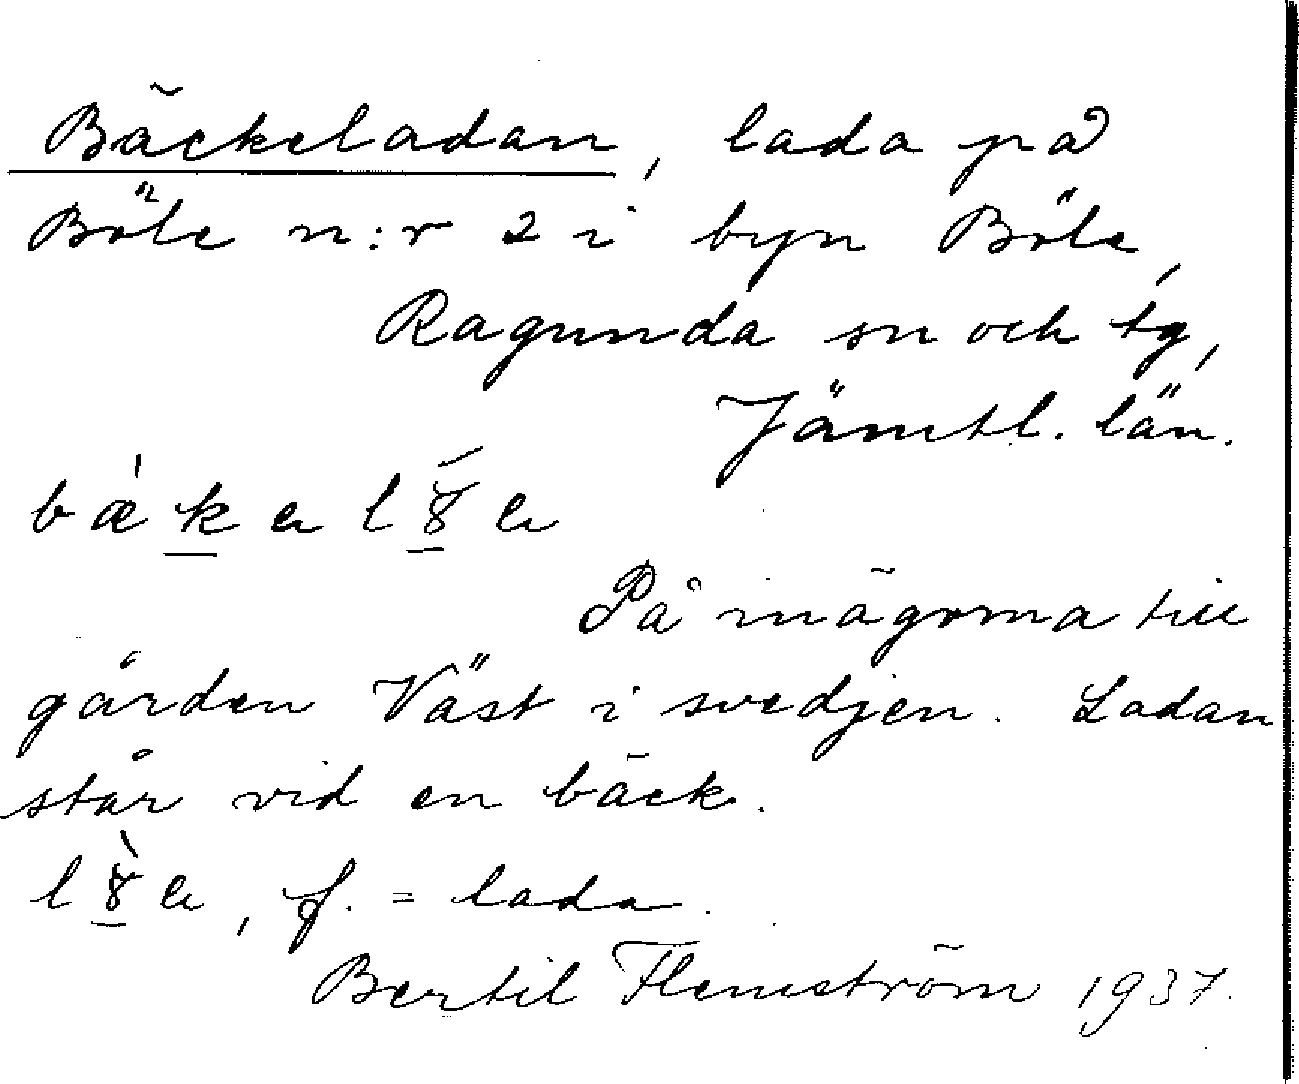 Bäckeladan, lada på
Böle n:r 2 i byn Böle,
Ragunda sn och tg,
Jämtl. län.
På inägorna till
gården Väst i svedjen. Ladan
står vid en bäck.
f. = lada.
Bertil Flemström 1937.